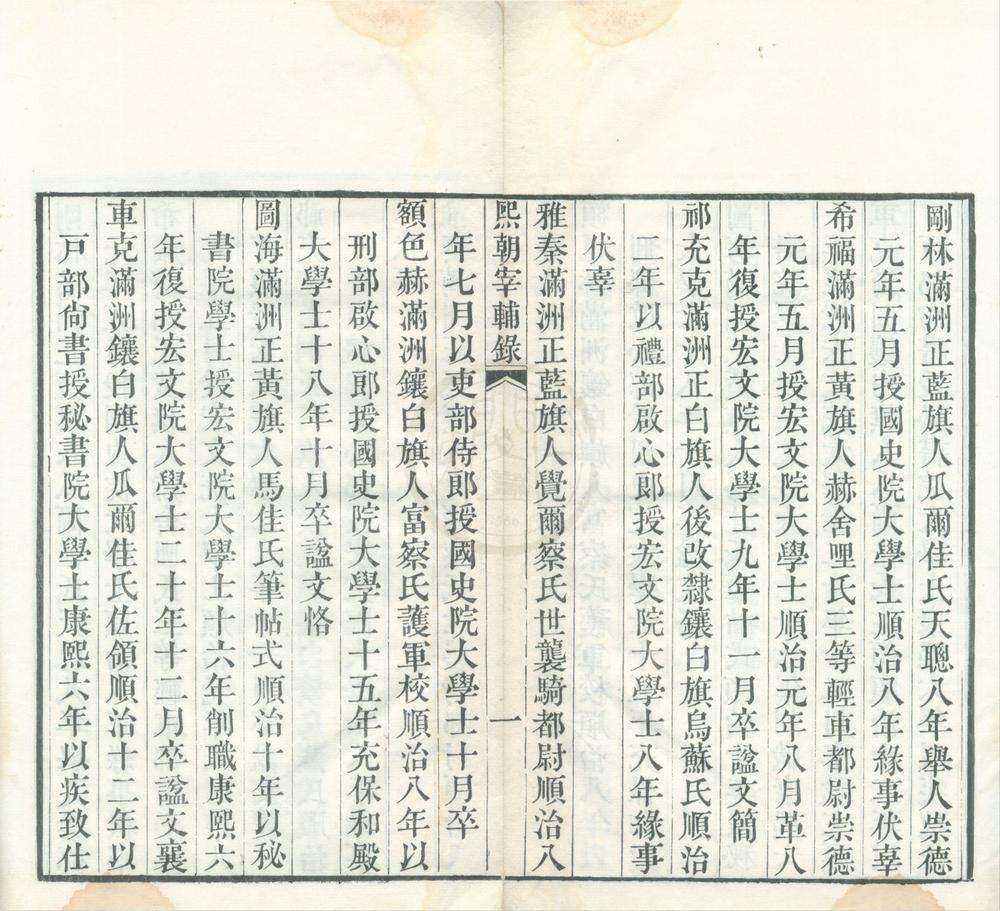 剛林滿洲正藍旗人瓜爾佳氏天聰八年舉人崇德
元年五月授國史院大學士順治八年緣事伏辜
希福滿洲正黃旗人赫舍哩氏三等輕車都尉崇德
元年五月授宏文院大學士順治元年八月革八
年復授宏文院大學士九年十一月卒諡文簡
祁充克滿洲正白旗人後改隸鑲白旗烏蘇氏順治
二年以禮部啟心郎授宏文院大學士八年緣事
伏辜
雅秦滿洲正藍旗人覺爾察氏世襲騎都尉順治八
熙朝宰輔錄 一
年七月以吏部侍郎授國史院大學士十月卒
額色赫滿洲鑲白旗人富察氏護軍校順治八年以
刑部啟心郎授國史院大學士十五年充保和殿
大學士十八年十月卒諡文恪
圖海滿洲正黃旗人馬佳氏筆帖式順治十年以秘
書院學士授宏文院大學士十六年削職康熙六
年復授宏文院大學士二十年十二月卒諡文襄
車克滿洲鑲白旗人瓜爾佳氏佐領順治十二年以
戸部尙書授秘書院大學士康熙六年以疾致仕